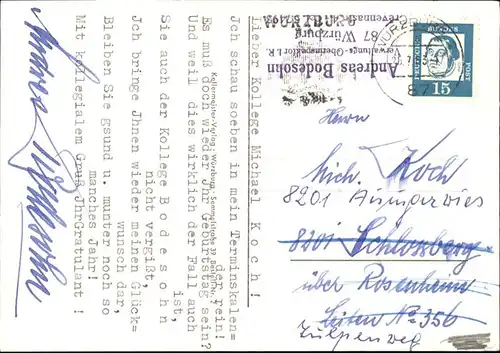 Lieber Kollege Michael Koch!
Ich schau soeben in mein Terminskalen=
der rein!
Es muß doch wieder Ihr Geburtstag sein?
Und weil dies wirklich der Fall auch
ist,
Sie auch der Kollege Bodesohn
nicht vergißt,
Jch bringe Jhnen wieder meinen Glück=
wunsch dar,
Bleiben Sie gsund u. munter noch so
manches Jahr!
Mit kollegialem Gruß JhrGratulant !
Kellermeister-Verlag, Würzburg,
Andreas Bodesohn
Verwaltungs-Oberinspektor i.R.
87 Würzburg
WÜRZBURG
87
DEUTSCHE
POST
15
Herrn
Mich. Koch
8201
8201 Schlossberg
über Rosenheim
Leiten No 356
Tulpenweg